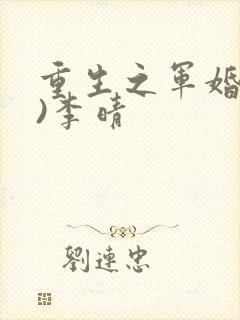 重生之军婚
)李晴
劉連忠